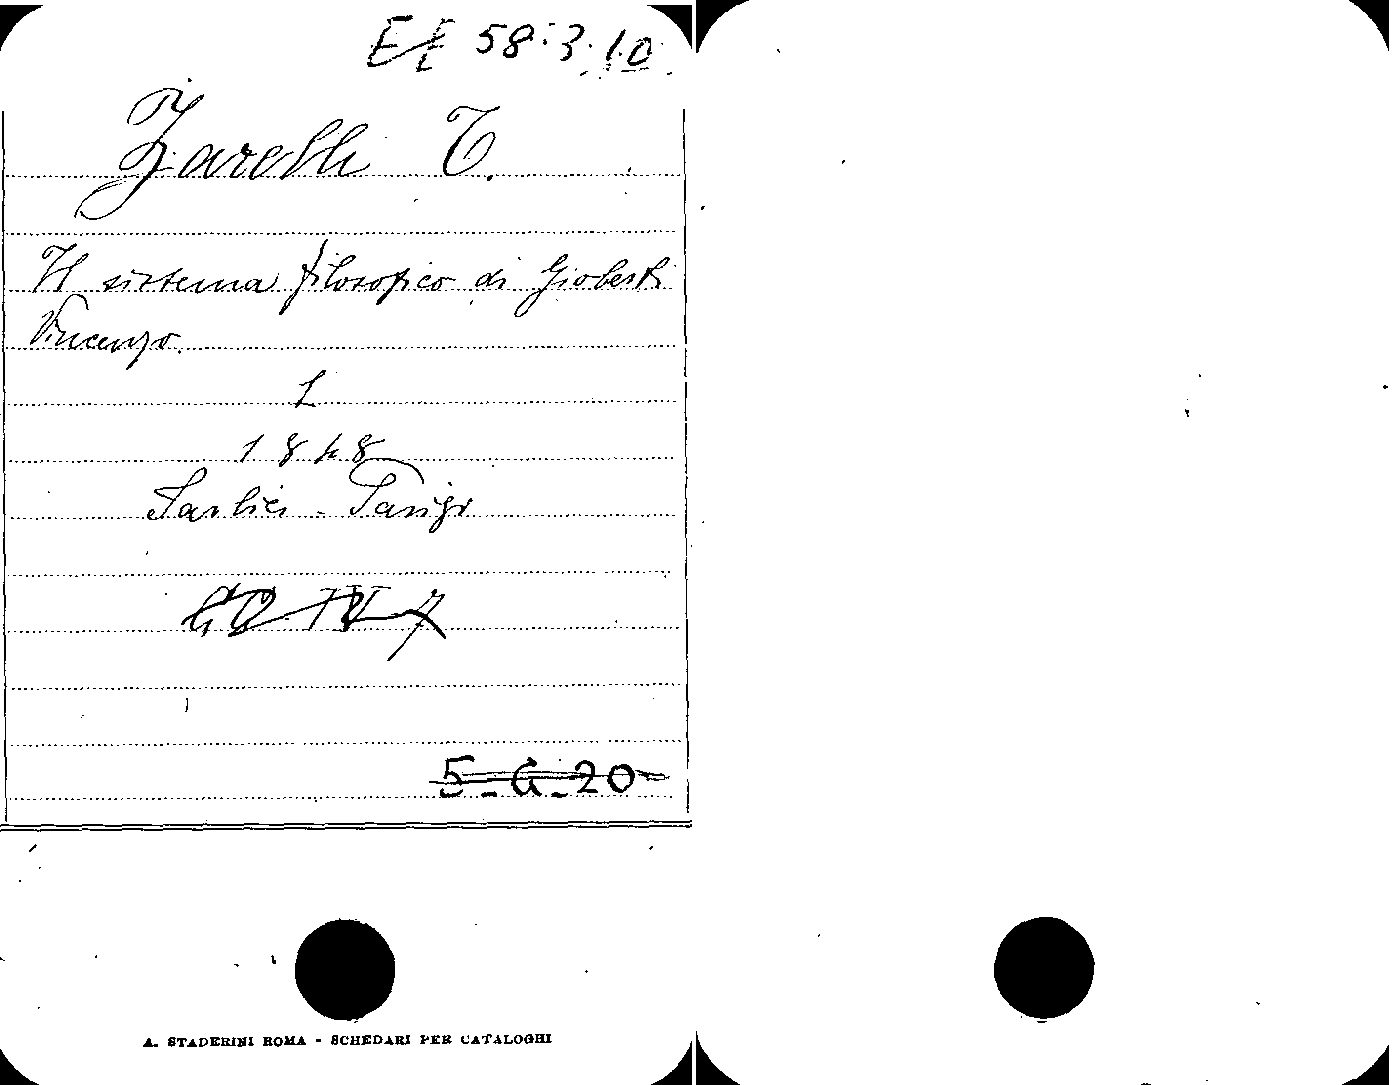 EE 58.3.10
Zarelli T.
Il sistema filosofico di Gioberti
Vincenzo.
1
1848
Parigi
5-G-20
A. STADERINI ROMA - SCHEDARI PER CATALOGHI